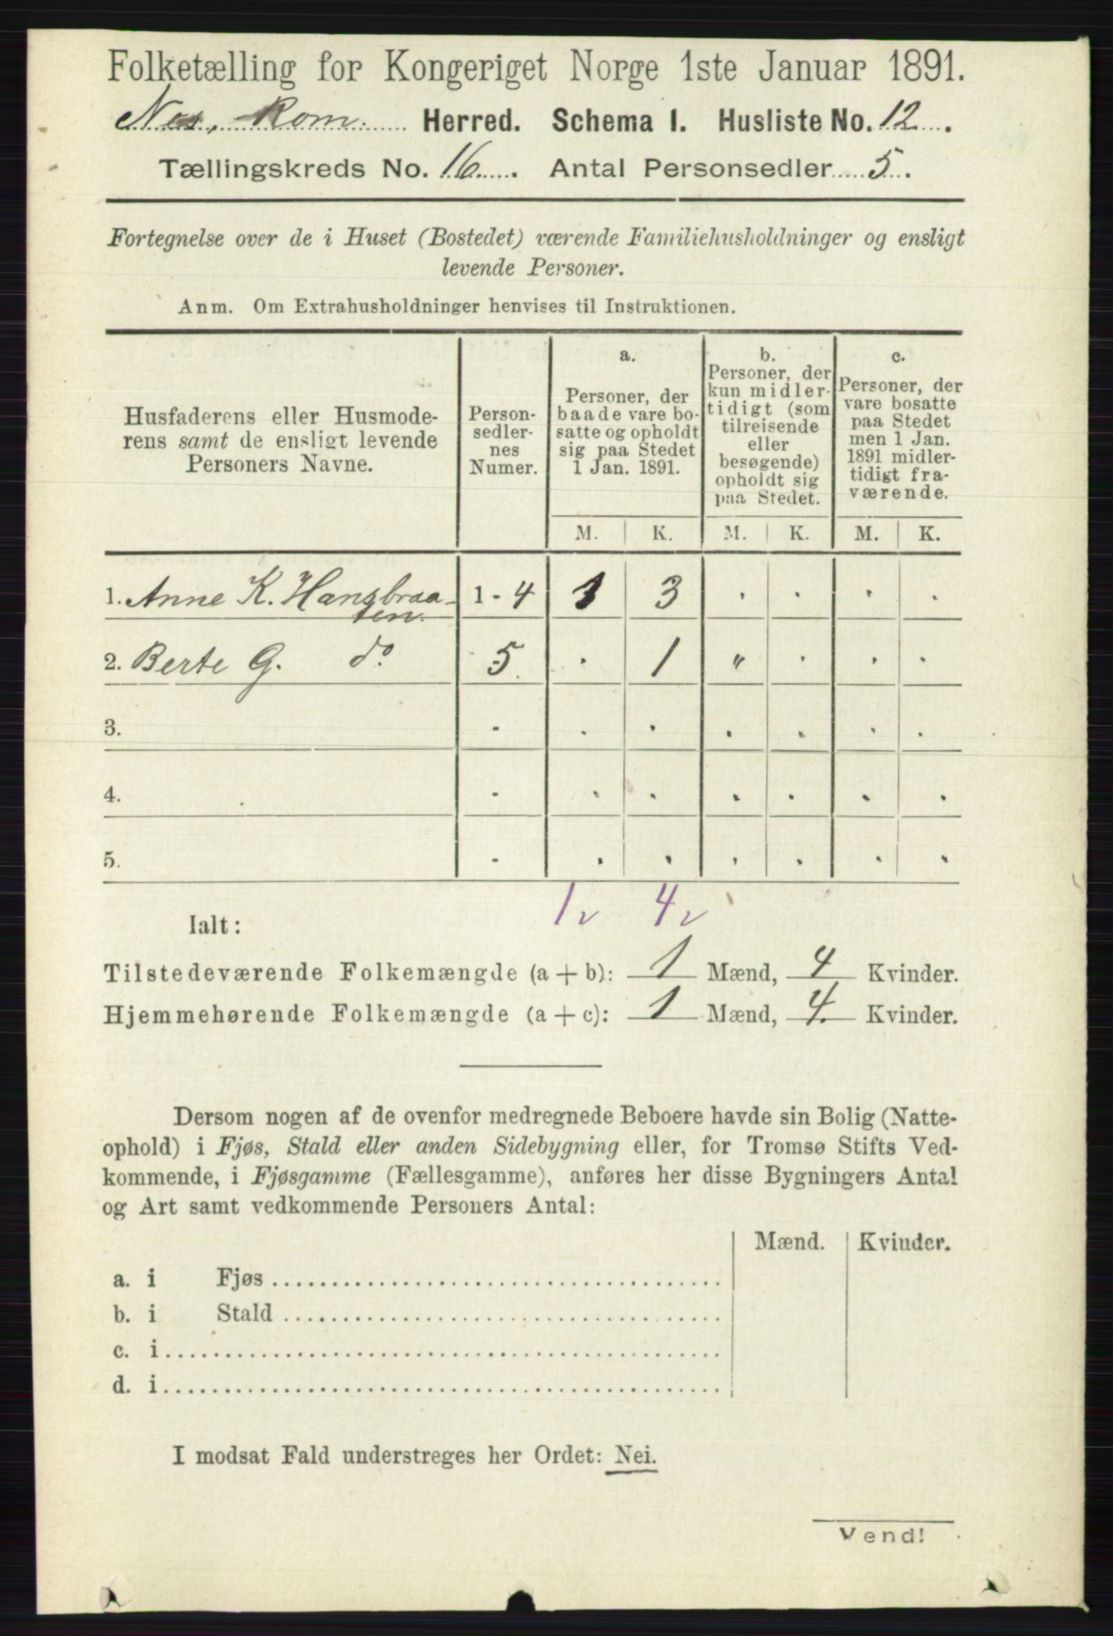 Folketælling for Kongeriget Norge 1ste Januar 1891.
Nes, Rom. Herred. Schema I. Husliste No. 12.
Tællingskreds No. 16. Antal Personsedler 5.
Fortegnelse over de i Huset (Bostedet) værende Familiehusholdninger og ensligt
levende Personer.
Anm. Om Extrahusholdninger henvises til Instruktionen.
Husfaderens eller Husmode-
rens samt de ensligt levende
Personers Navne.
Person-
sedler-
nes
Numer.
a.
Personer, der
baade vare bo-
satte og opholdt
sig paa Stedet
1 Jan. 1891.
b.
Personer, der
kun midler-
tidigt (som
tilreisende
eller
besøgende)
opholdt sig
paa Stedet.
c.
Personer, der
vare bosatte
paa Stedet
men 1 Jan.
1891 midler-
tidigt fra-
værende.
M. K. M. K. M. K.
1. Anne K. Hansbraa- 1 - 4 1 3 . . . .
ten.
2. Berte G. do 5. . 1 " . . .
3. - . . . . . .
4. - . . . . . .
5. - . . . . . .
Ialt: 1v 4v
Tilstedeværende Folkemængde (a + b): 1 Mænd, 4 Kvinder.
Hjemmehørende Folkemængde (a + c): 1 Mænd, 4. Kvinder.
Dersom nogen af de ovenfor medregnede Beboere havde sin Bolig (Natte-
ophold) i Fjøs, Stald eller anden Sidebygning eller, for Tromsø Stifts Ved-
kommende, i Fjøsgamme (Fællesgamme), anføres her disse Bygningers Antal
og Art samt vedkommende Personers Antal:
Mænd. Kvinder.
a. i Fjøs
b. i Stald
c. i
d. i
I modsat Fald understreges her Ordet: Nei.
Vend!